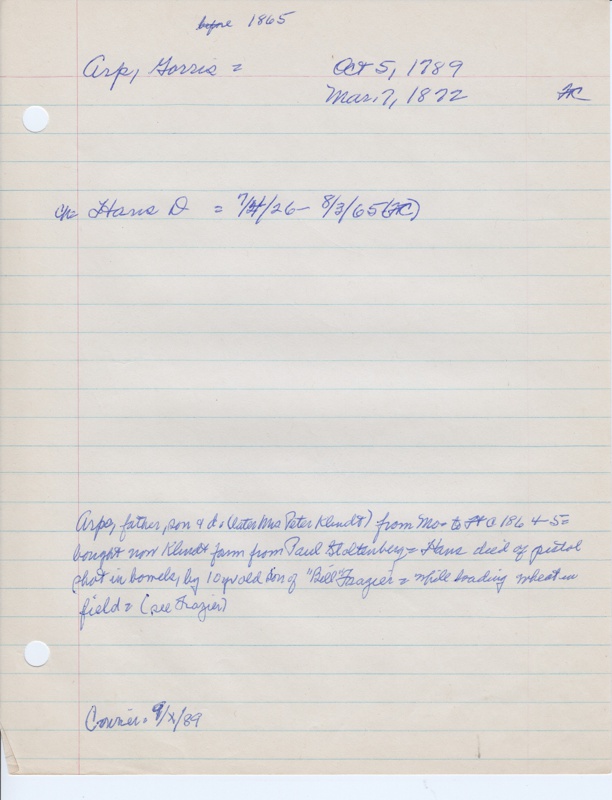 before 1865
Arp, Gorris = Oct 5, 1789
Mar. 7, 1872 HC
c/n= Hans D = 7/4/26 - 8/3/65 (HC)
Arps, father, son & d. (later Mrs Peter Klindt) from Mo. to HC 1864-5=
bought now Klindt farm from Paul Stoltenberg = Hans died of pistol
shot in bowels, by 10 yr old son of "Bill" Frazier = while loading wheat in
field = (see Frazier)
Courier. 9/X/89